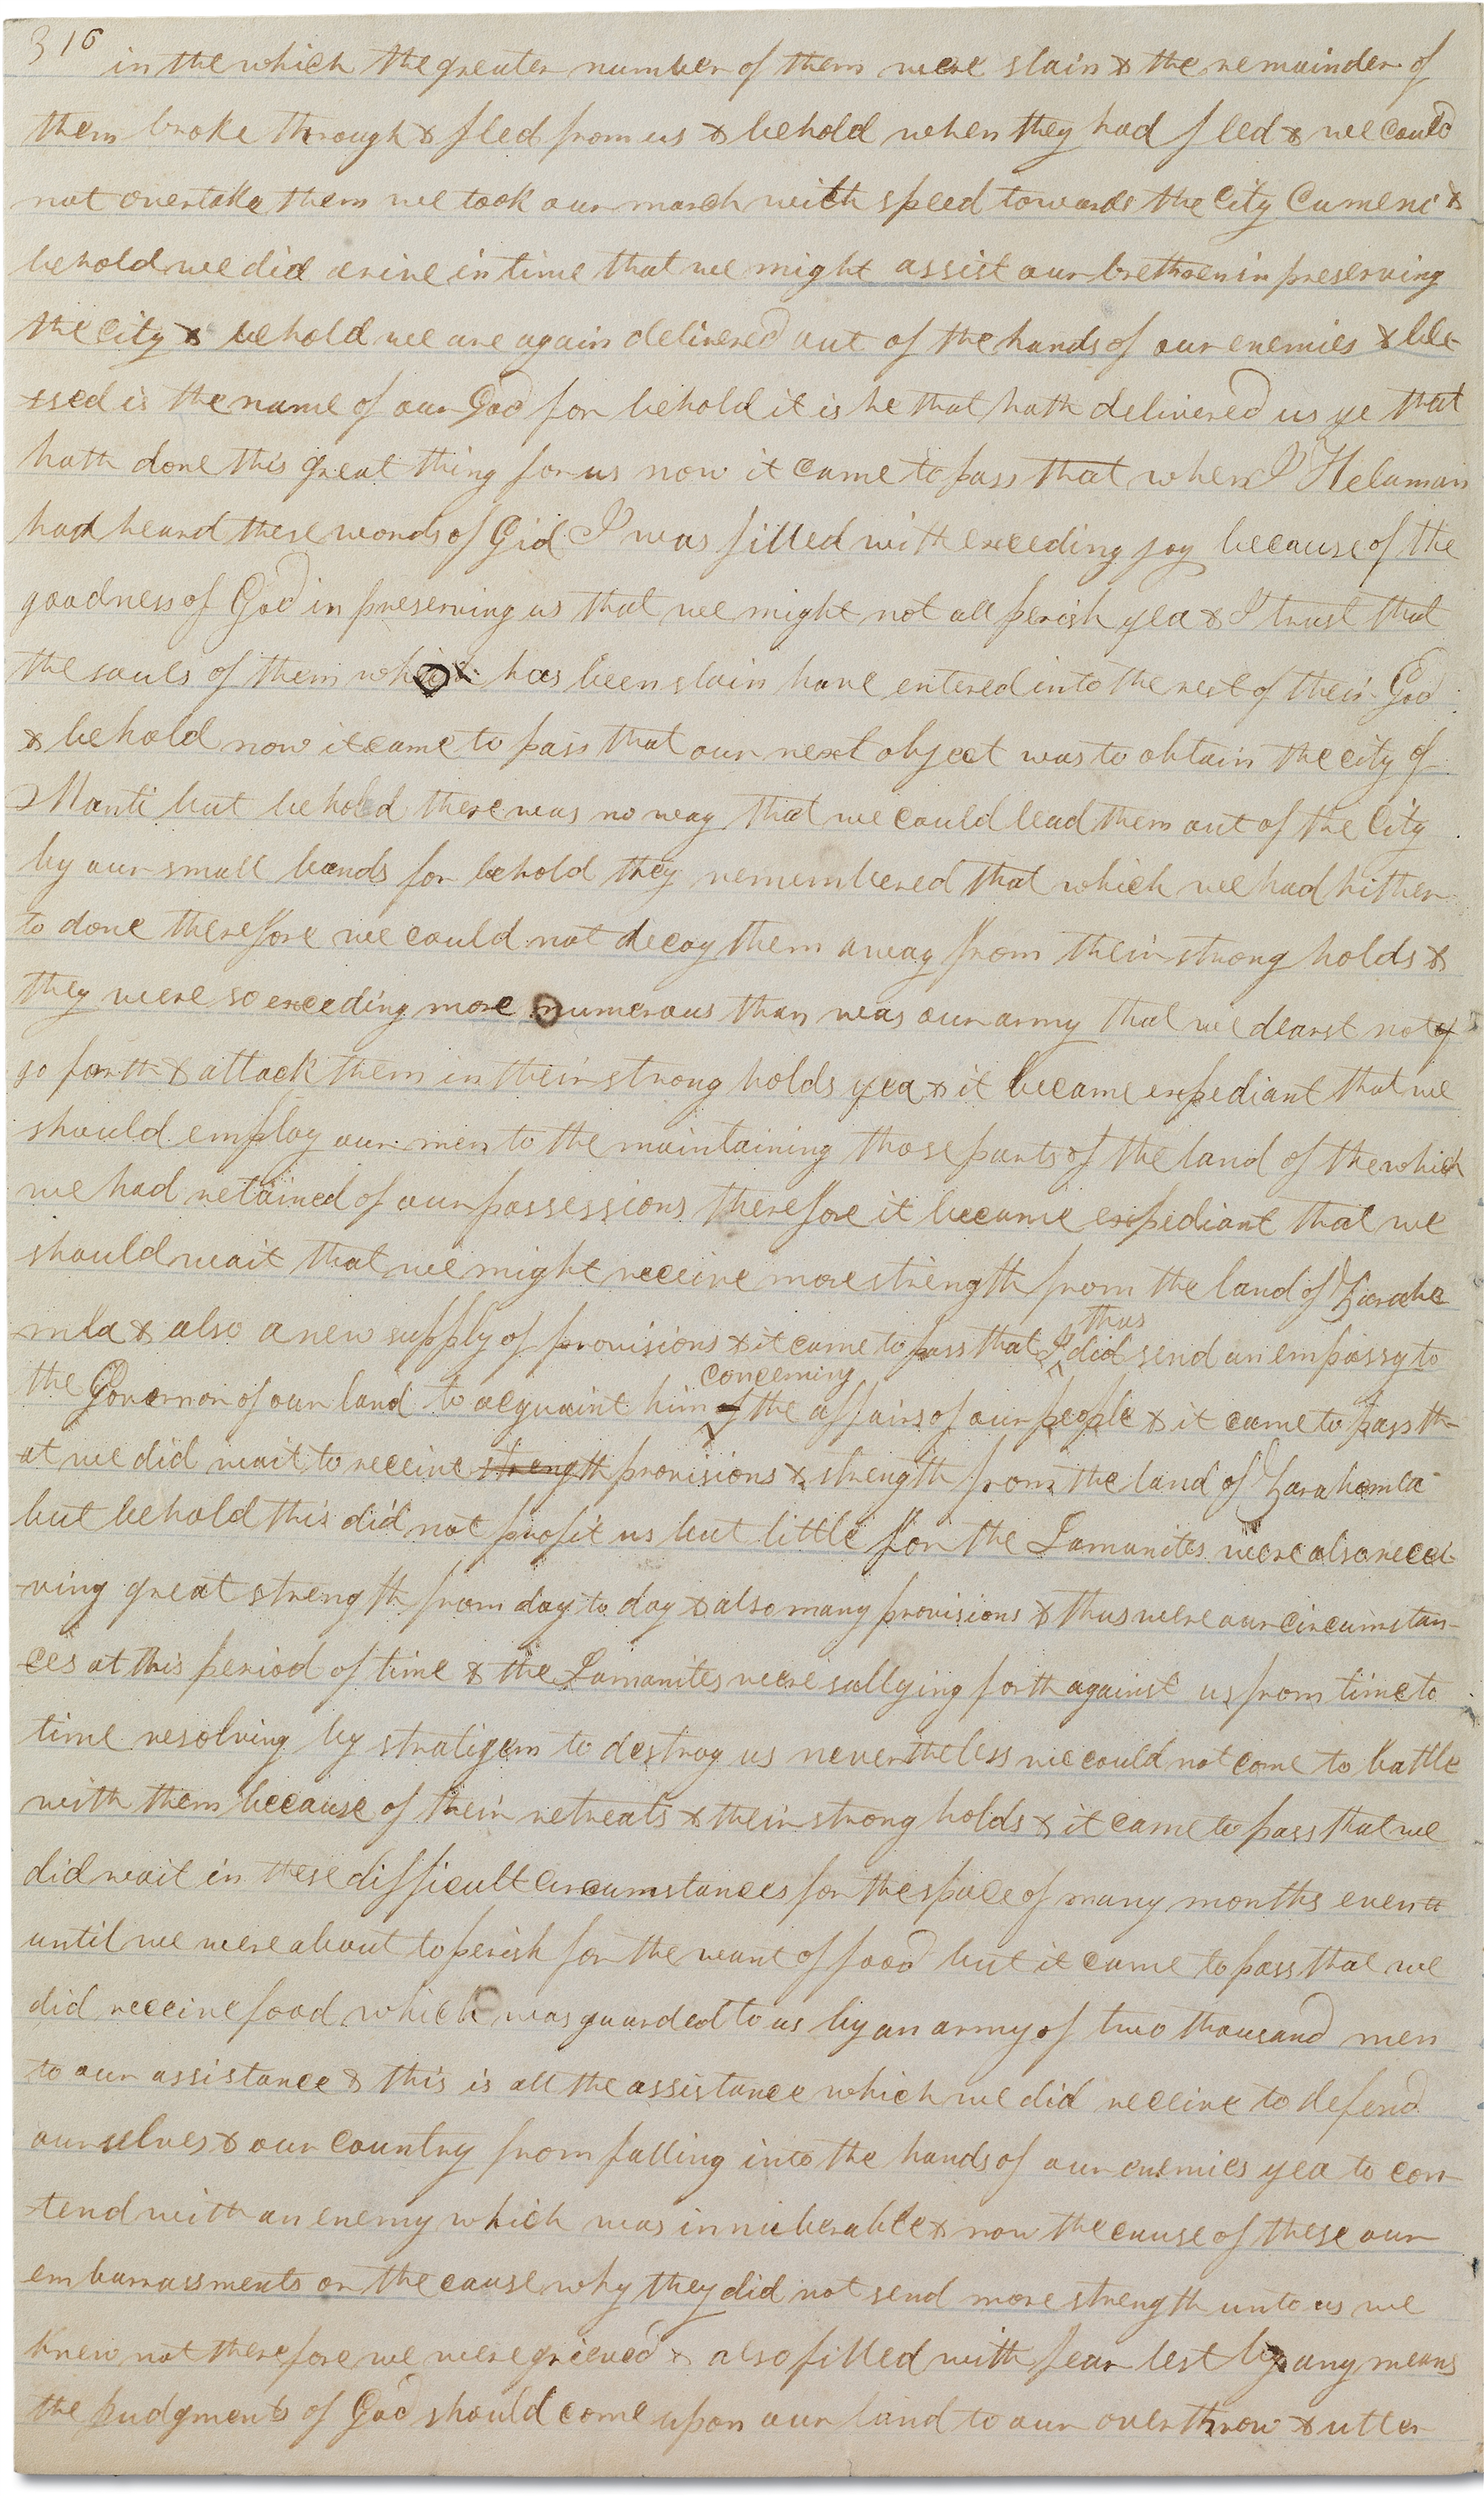 316
in the which the greater number of them were slain & the remainder of
them broke through & fled from us & behold when they had fled & we could
not overtake them we took our march with speed towards the City Cumeni &
behold we did arive in time that we might assist our brethren in preserving
the city & behold we are again delivered out of the hands of our enemies & ble-
-ssed is the name of our God for behold it is he that hath delivered us ye that
hath done this great thing for us now it came to pass that when I Helaman
had heard these words of Gid I was filled with exceeding joy because of the
goodness of God in preserving us that we might not all perish yea & I trust that
the souls of them has been slain have entered into the rest of their God
& behold now it came to pass that our next object was to obtain the city of
Manti but behold there was no way that we could lead them out of the City
by our small bands for behold they remembered that which we had hither-
to done therefore we could not decoy them away from their strong holds &
they were so exceeding more numerous than was our army that we dearst not
go forth & attack them in their strong holds yea & it became expediant that we
should employ our men to the maintaining those parts of the land of the which
we had retained of our possessions therefore it became expediant that we
should wait that we might receive more strength from the land of Zarahe
mla & also a new supply of provisions & it came to pass that I thus did send an empassy to
the Governor of our land to acquaint him of concerning the affairs of our people & it came to pass th-
at we did wait to receive strength provisions & strength from the land of Zarahemla
but behold this did not profit us but little for the Lamanites were also recei-
-ving great strength from day to day & also many provisions & thus were our circumstan-
ces at this period of time & the Lamanites were sallying forth against us from time to
time resolving by stratigem to destroy us nevertheless we could not come to battle
with them because of their retreats & their strong holds & it came to pass that we
did wait in these difficult circumstances for the space of many months even
until we were about to perish for the want of food but it came to pass that we
did receive food which was guarded to us by an army of two thousand men
to our assistance & this is all the assistance which we did receive to defend
ourselves & our country from falling into the hands of our enemies yea to con-
-tend with an enemy which was innuberable & now the cause of these our
embarrassments or the cause why they did not send more strength unto us we
knew not therefore we were grieved & also filled with fear lest by any means
the judgments of God should come upon our land to our overthrow & utter